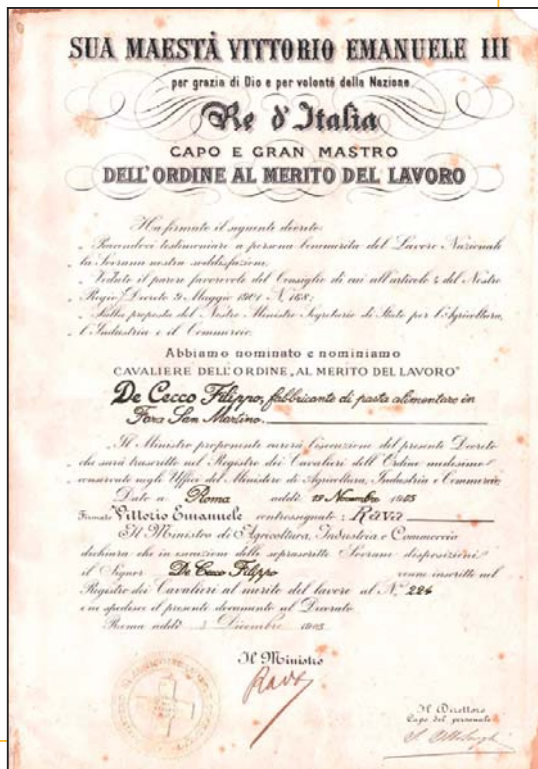 SUA MAESTÀ VITTORIO EMANUELE III
per grazia di Dio e per volontà della Nazione
Re d'Italia
CAPO E GRAN MASTRO
DELL'ORDINE AL MERITO DEL LAVORO
Ha firmato il seguente decreto:
„ Piacendoci testimoniare a persona benemerita del Lavoro Nazionale
la Sovrana nostra soddisfazione;
„ Veduto il parere favorevole del Consiglio di cui all'articolo 4 del Nostro
„ Regio Decreto 9 Maggio 1901 N. 168;
„ Sulla proposta del Nostro Ministro Segretario di Stato per l'Agricoltura,
„ l'Industria e il Commercio.
Abbiamo nominato e nominiamo
CAVALIERE DELL'ORDINE „AL MERITO DEL LAVORO"
De Cecco Filippo, fabbricante di pasta alimentare in
Fara San Martino.
„ Il Ministro proponente curerà l'esecuzione del presente Decreto
„ che sarà trascritto nel Registro dei Cavalieri dell'Ordine medesimo
„ conservato negli Uffici del Ministero di Agricoltura, Industria e Commercio
Dato a: Roma addì Novembre 1905
Firmato Vittorio Emanuele controssegnato: Rava
Il Ministro di Agricoltura, Industria e Commercio
dichiara che in esecuzione delle soprascritte Sovrane disposizioni
il Signor De Cecco Filippo venne inscritto nel
Registro dei Cavalieri al merito del lavoro al N.° 224
e ne spedisce il presente documento al Decorato.
Roma addì 3 Dicembre 1905
Il Ministro
Rava
Il Direttore
Capo del personale